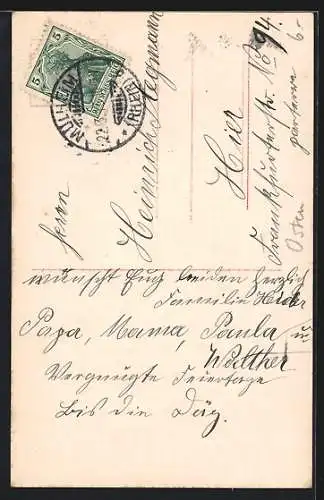 5
5
MÜLHEIM
(RHEIN)
22
Herrn
Heinrich
Hier
Frankfurterstr. No 94.
parterre
Ostern
wünscht Euch beiden herzlich
Familie
Papa, Mama, Paula u.
Walther
Vergnügte Feiertage
Bis die Däg.